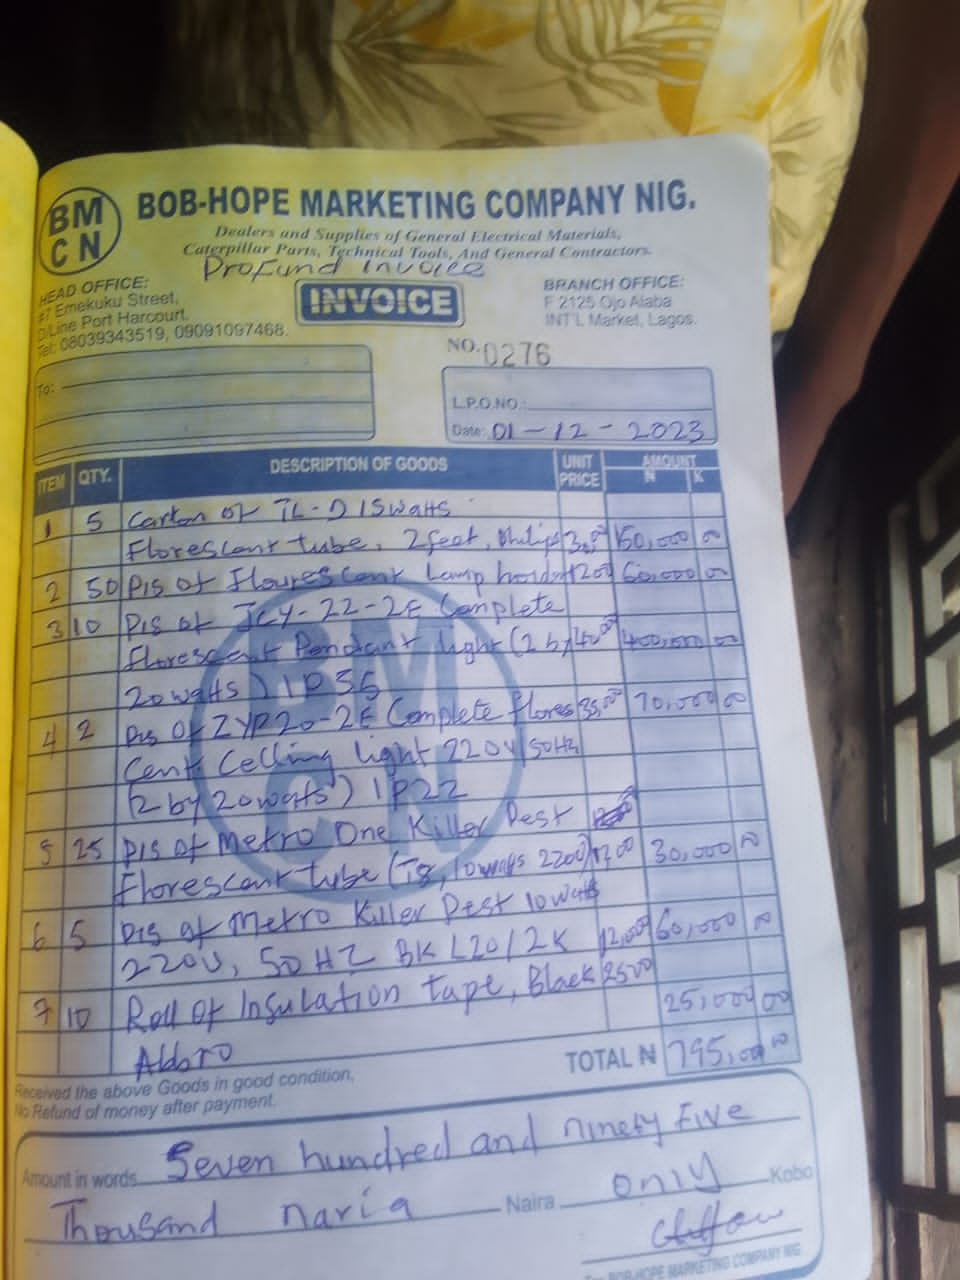 BM
CN
BOB-HOPE MARKETING COMPANY NIG.
Dealers and Supplies of General Electrical Materials,
Caterpillar Parts, Technical Tools, And General Contractors.
Profund Invoice
HEAD OFFICE:
#7 Emekuku Street,
D/Line Port Harcourt.
Tel: 08039343519, 09091097468.
INVOICE
BRANCH OFFICE:
F 2125 Ojo Alaba
INT'L Market, Lagos.
NO. 0276
To:
L.P.O.NO.:
Date: 01-12-2023
ITEM QTY. DESCRIPTION OF GOODS UNIT PRICE AMOUNT N K
1 5 Carton of TL-D 15watts
Florescent tube, 2feet, Philips 150,000 00
2 50 Pis of Flourescent Lamp holder 1200 60,000 00
3 10 Pis of JCY-22-2E Complete
florescent Pendant light (2 by 400,000 00
20watts) IP55
4 2 Pis Of ZYP20-2E Complete flores 70,000 00
Cent Celling light 220V 50Hz
(2 by 20watts) IP22
5 25 Pis of Metro One Killer Pest
Florescent tube (T8, 10watts 220v) 1200 30,000 00
6 5 Pis of Metro Killer Pest 10watts
220V, 50HZ BK L20/2K 12,000 60,000 00
7 10 Roll Of Insulation tape, Black 2500
25,000 00
Abbro
TOTAL N 795,000 00
Received the above Goods in good condition,
No Refund of money after payment.
Amount in words Seven hundred and ninety five
Thousand naria Naira only Kobo
BOB-HOPE MARKETING COMPANY NIG